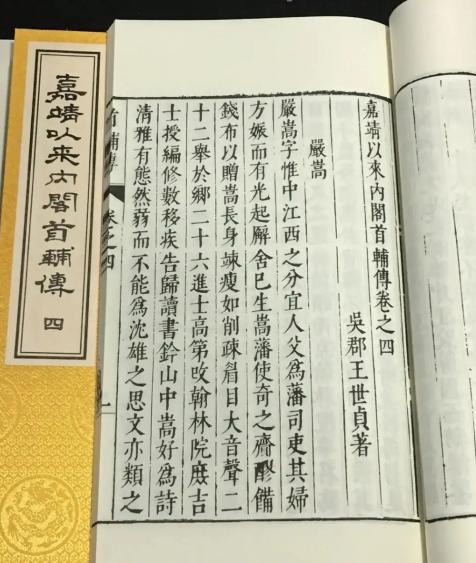 嘉靖以來內閣首輔傳卷之四
吳郡王世貞著
嚴嵩
嚴嵩字惟中江西之分宜人父爲藩司吏其婦
方娠而有光起廨舍巳生嵩藩使奇之齎醪備
錢布以贈嵩長身竦瘦如削疎眉目大音聲二
十二舉於鄉二十六進士高第改翰林院庶吉
士授編修數移疾告歸讀書鈐山中嵩好爲詩
清雅有態然蒻而不能爲沈雄之思文亦類之
首輔傳
卷之四
一
嘉靖以來內閣首輔傳 四